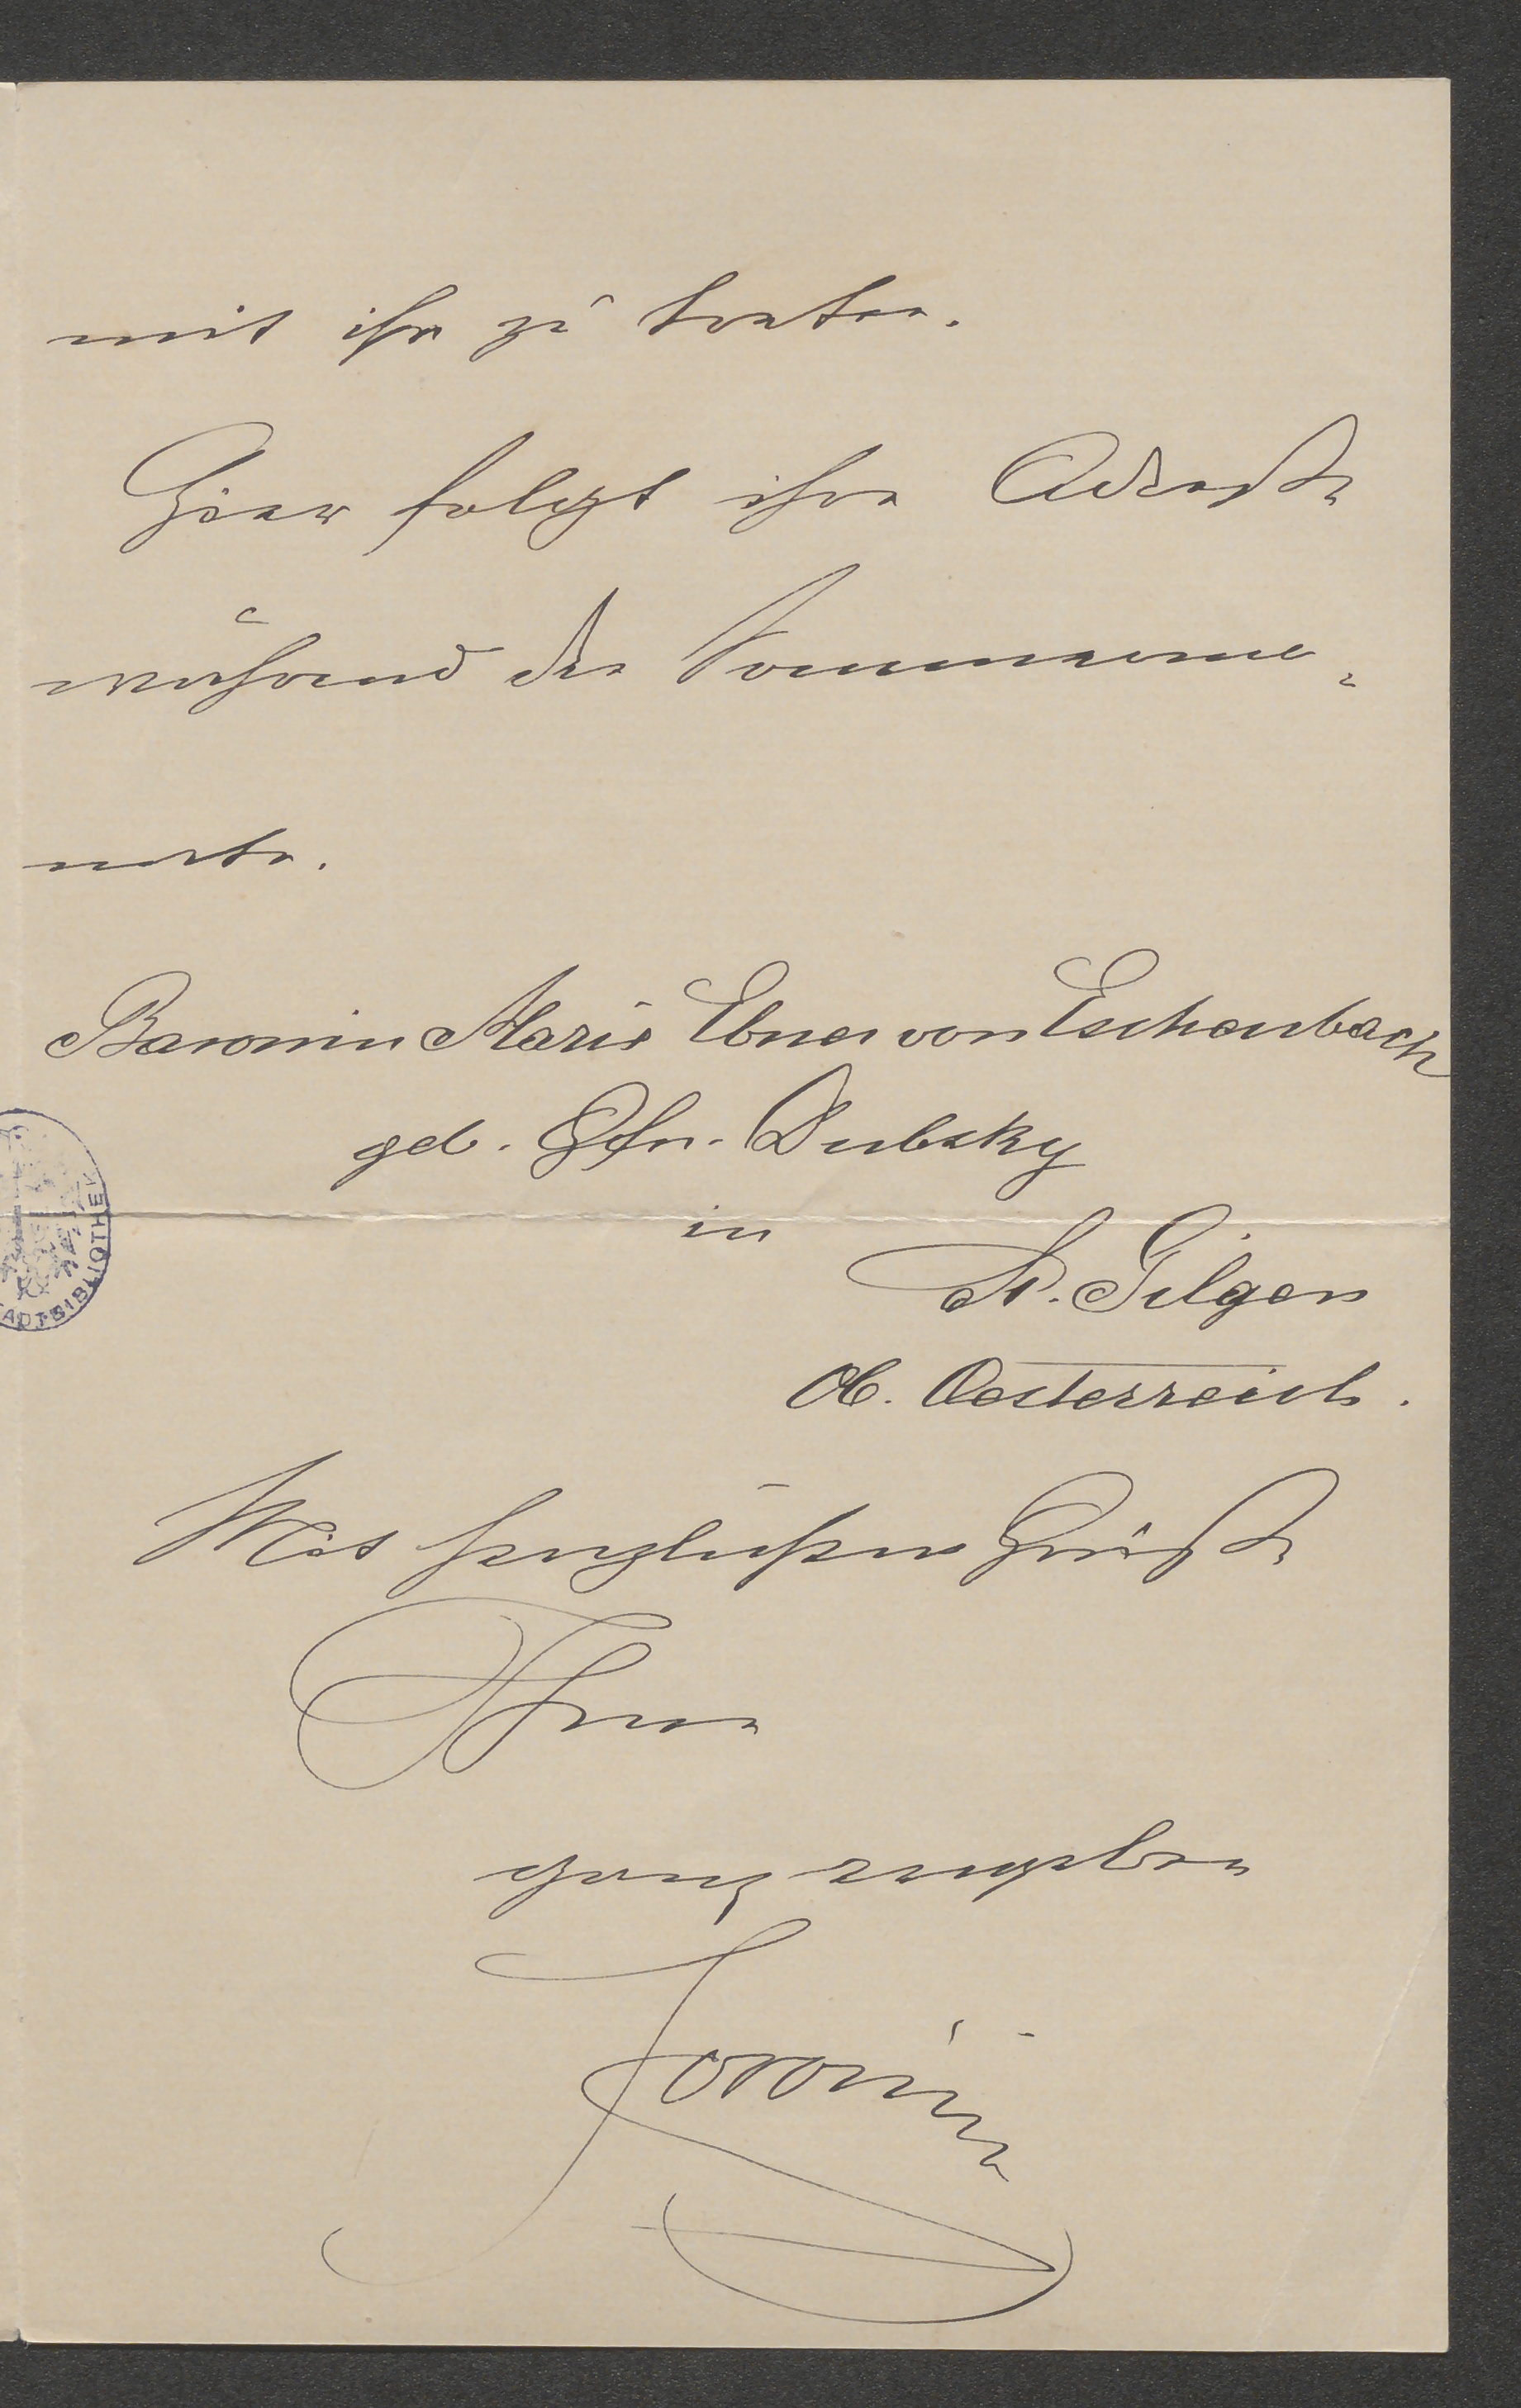 mit ihr zu treten.
Hier folgt ihre Adresse
während der Sommermo-
nate.
Baronin Marie Ebner von Eschenbach
geb. Gfn. Dubsky
in
St. Gilgen
Ob. Oesterreich.
Mit herzlichem Gruße
Ihre
ganz ergebene
ADTBIBLIOTHEK